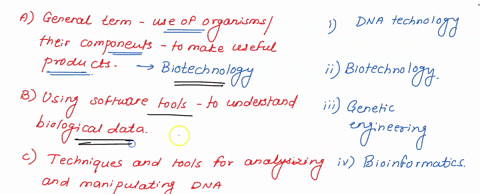 A) General term - use of organisms/
their components - to make useful
products. → Biotechnology
B) Using software tools - to understand
biological data.
C) Techniques and tools for analysizing
and manipulating DNA
i) DNA technology
ii) Biotechnology.
iii) Genetic
engineering
iv) Bioinformatics.